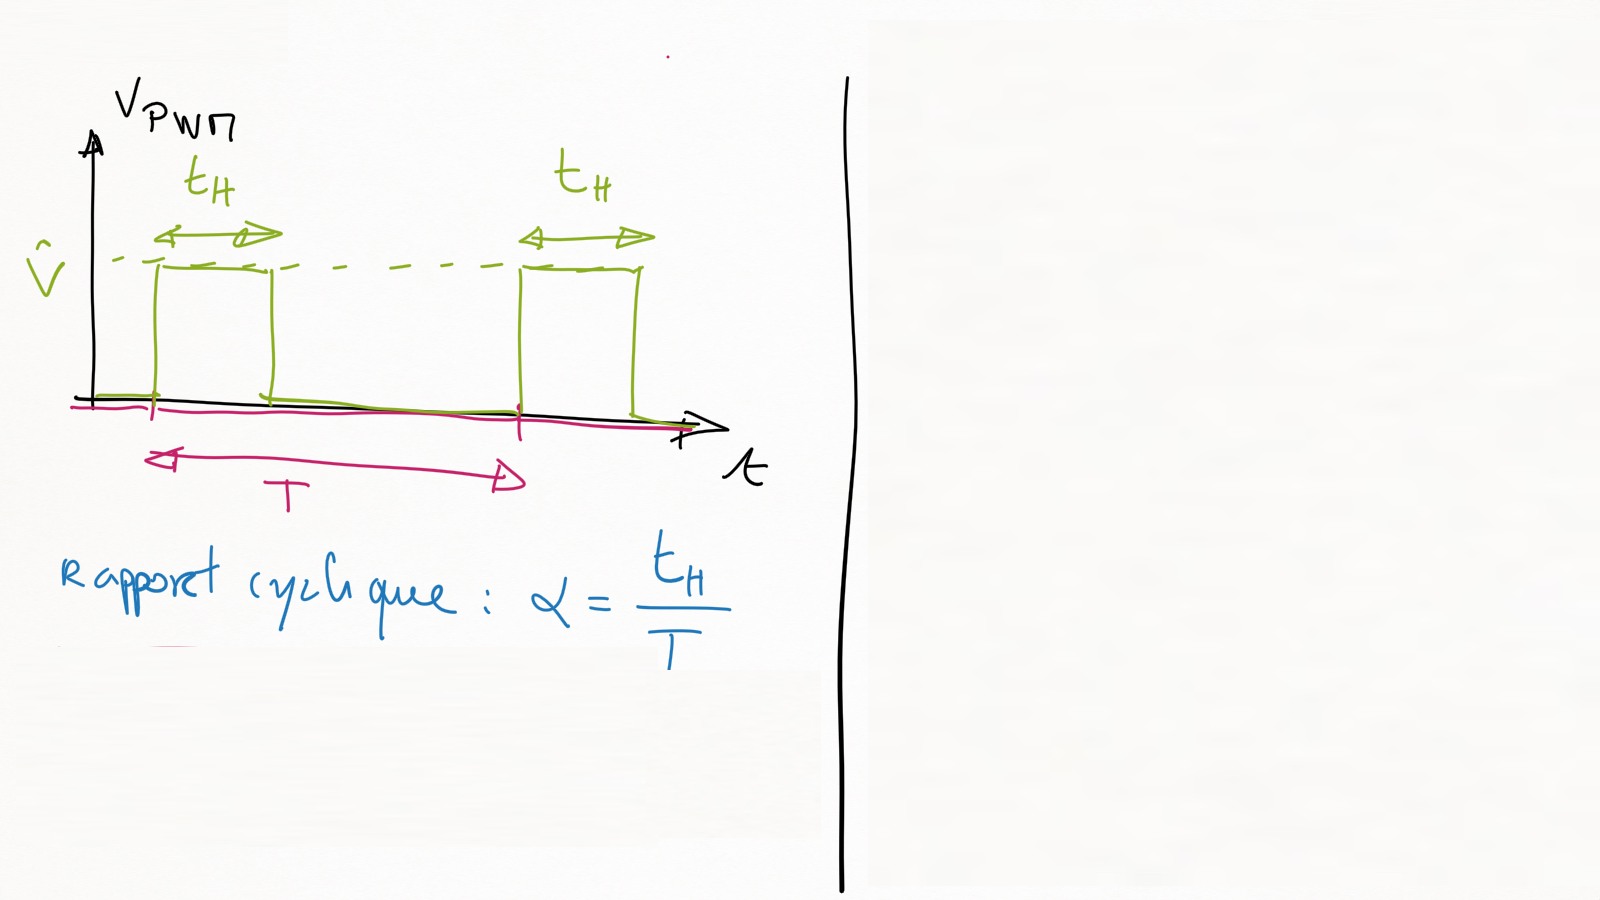 V_PWM
t_H t_H
V̂
t
T
Rapport cyclique : α = t_H / T